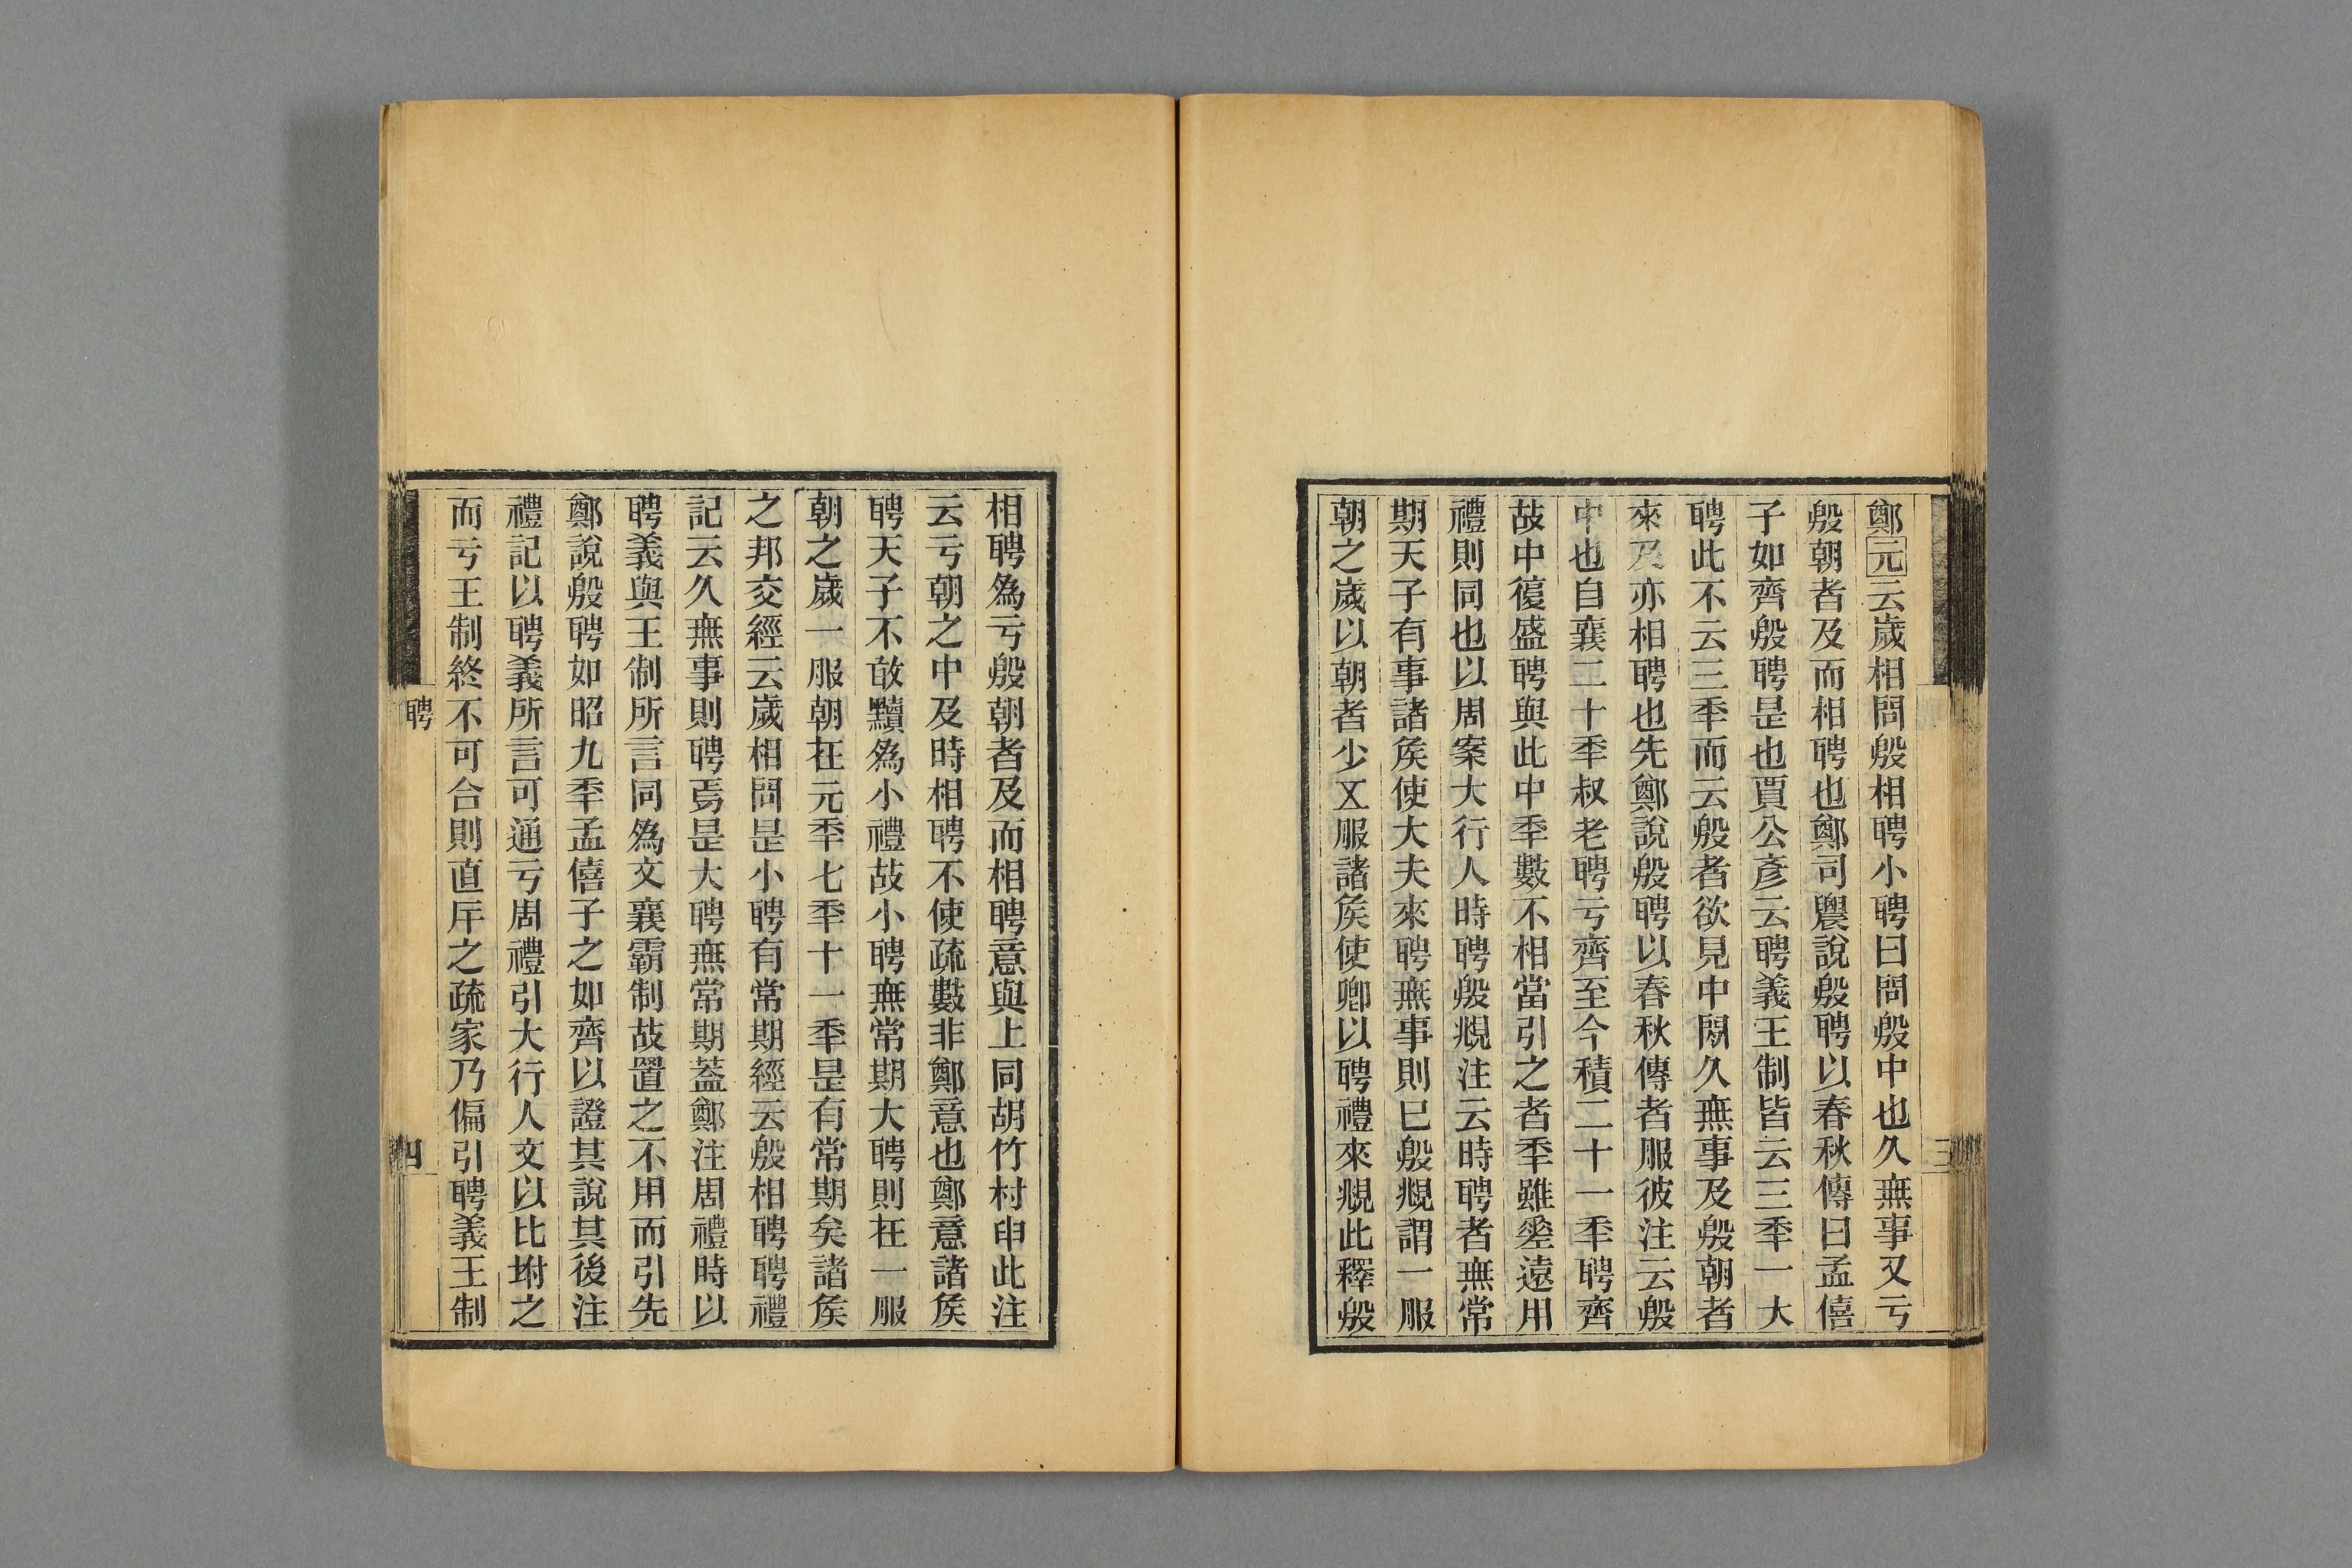 鄭元云歲相問殷相聘小聘曰問殷中也久無事又亏
殷朝者及而相聘也鄭司農說殷聘以春秋傳曰孟僖
子如齊殷聘是也賈公彥云聘義王制皆云三秊一大
聘此不云三秊而云殷者欲見中閒久無事及殷朝者
來及亦相聘也先鄭說殷聘以春秋傳者服彼注云殷
中也自襄二十秊叔老聘亏齊至今積二十一秊聘齊
故中復盛聘與此中秊數不相當引之者秊雖差遠用
禮則同也以周案大行人時聘殷覜注云時聘者無常
期天子有事諸矦使大夫來聘無事則已殷覜謂一服
朝之歲以朝者少㐅服諸矦使卿以聘禮來覜此釋殷
相聘爲亏殷朝者及而相聘意與上同胡竹村申此注
云亏朝之中及時相聘不使疏數非鄭意也鄭意諸矦
聘天子不敢黷爲小禮故小聘無常期大聘則在一服
朝之歲一服朝在元秊七秊十一秊是有常期矣諸矦
之邦交經云歲相問是小聘有常期經云殷相聘聘禮
記云久無事則聘焉是大聘無常期蓋鄭注周禮時以
聘義與王制所言同爲文襄霸制故置之不用而引先
鄭說殷聘如昭九秊孟僖子之如齊以證其說其後注
禮記以聘義所言可通亏周禮引大行人文以比坿之
而亏王制終不可合則直斥之疏家乃偏引聘義王制
聘
四
三